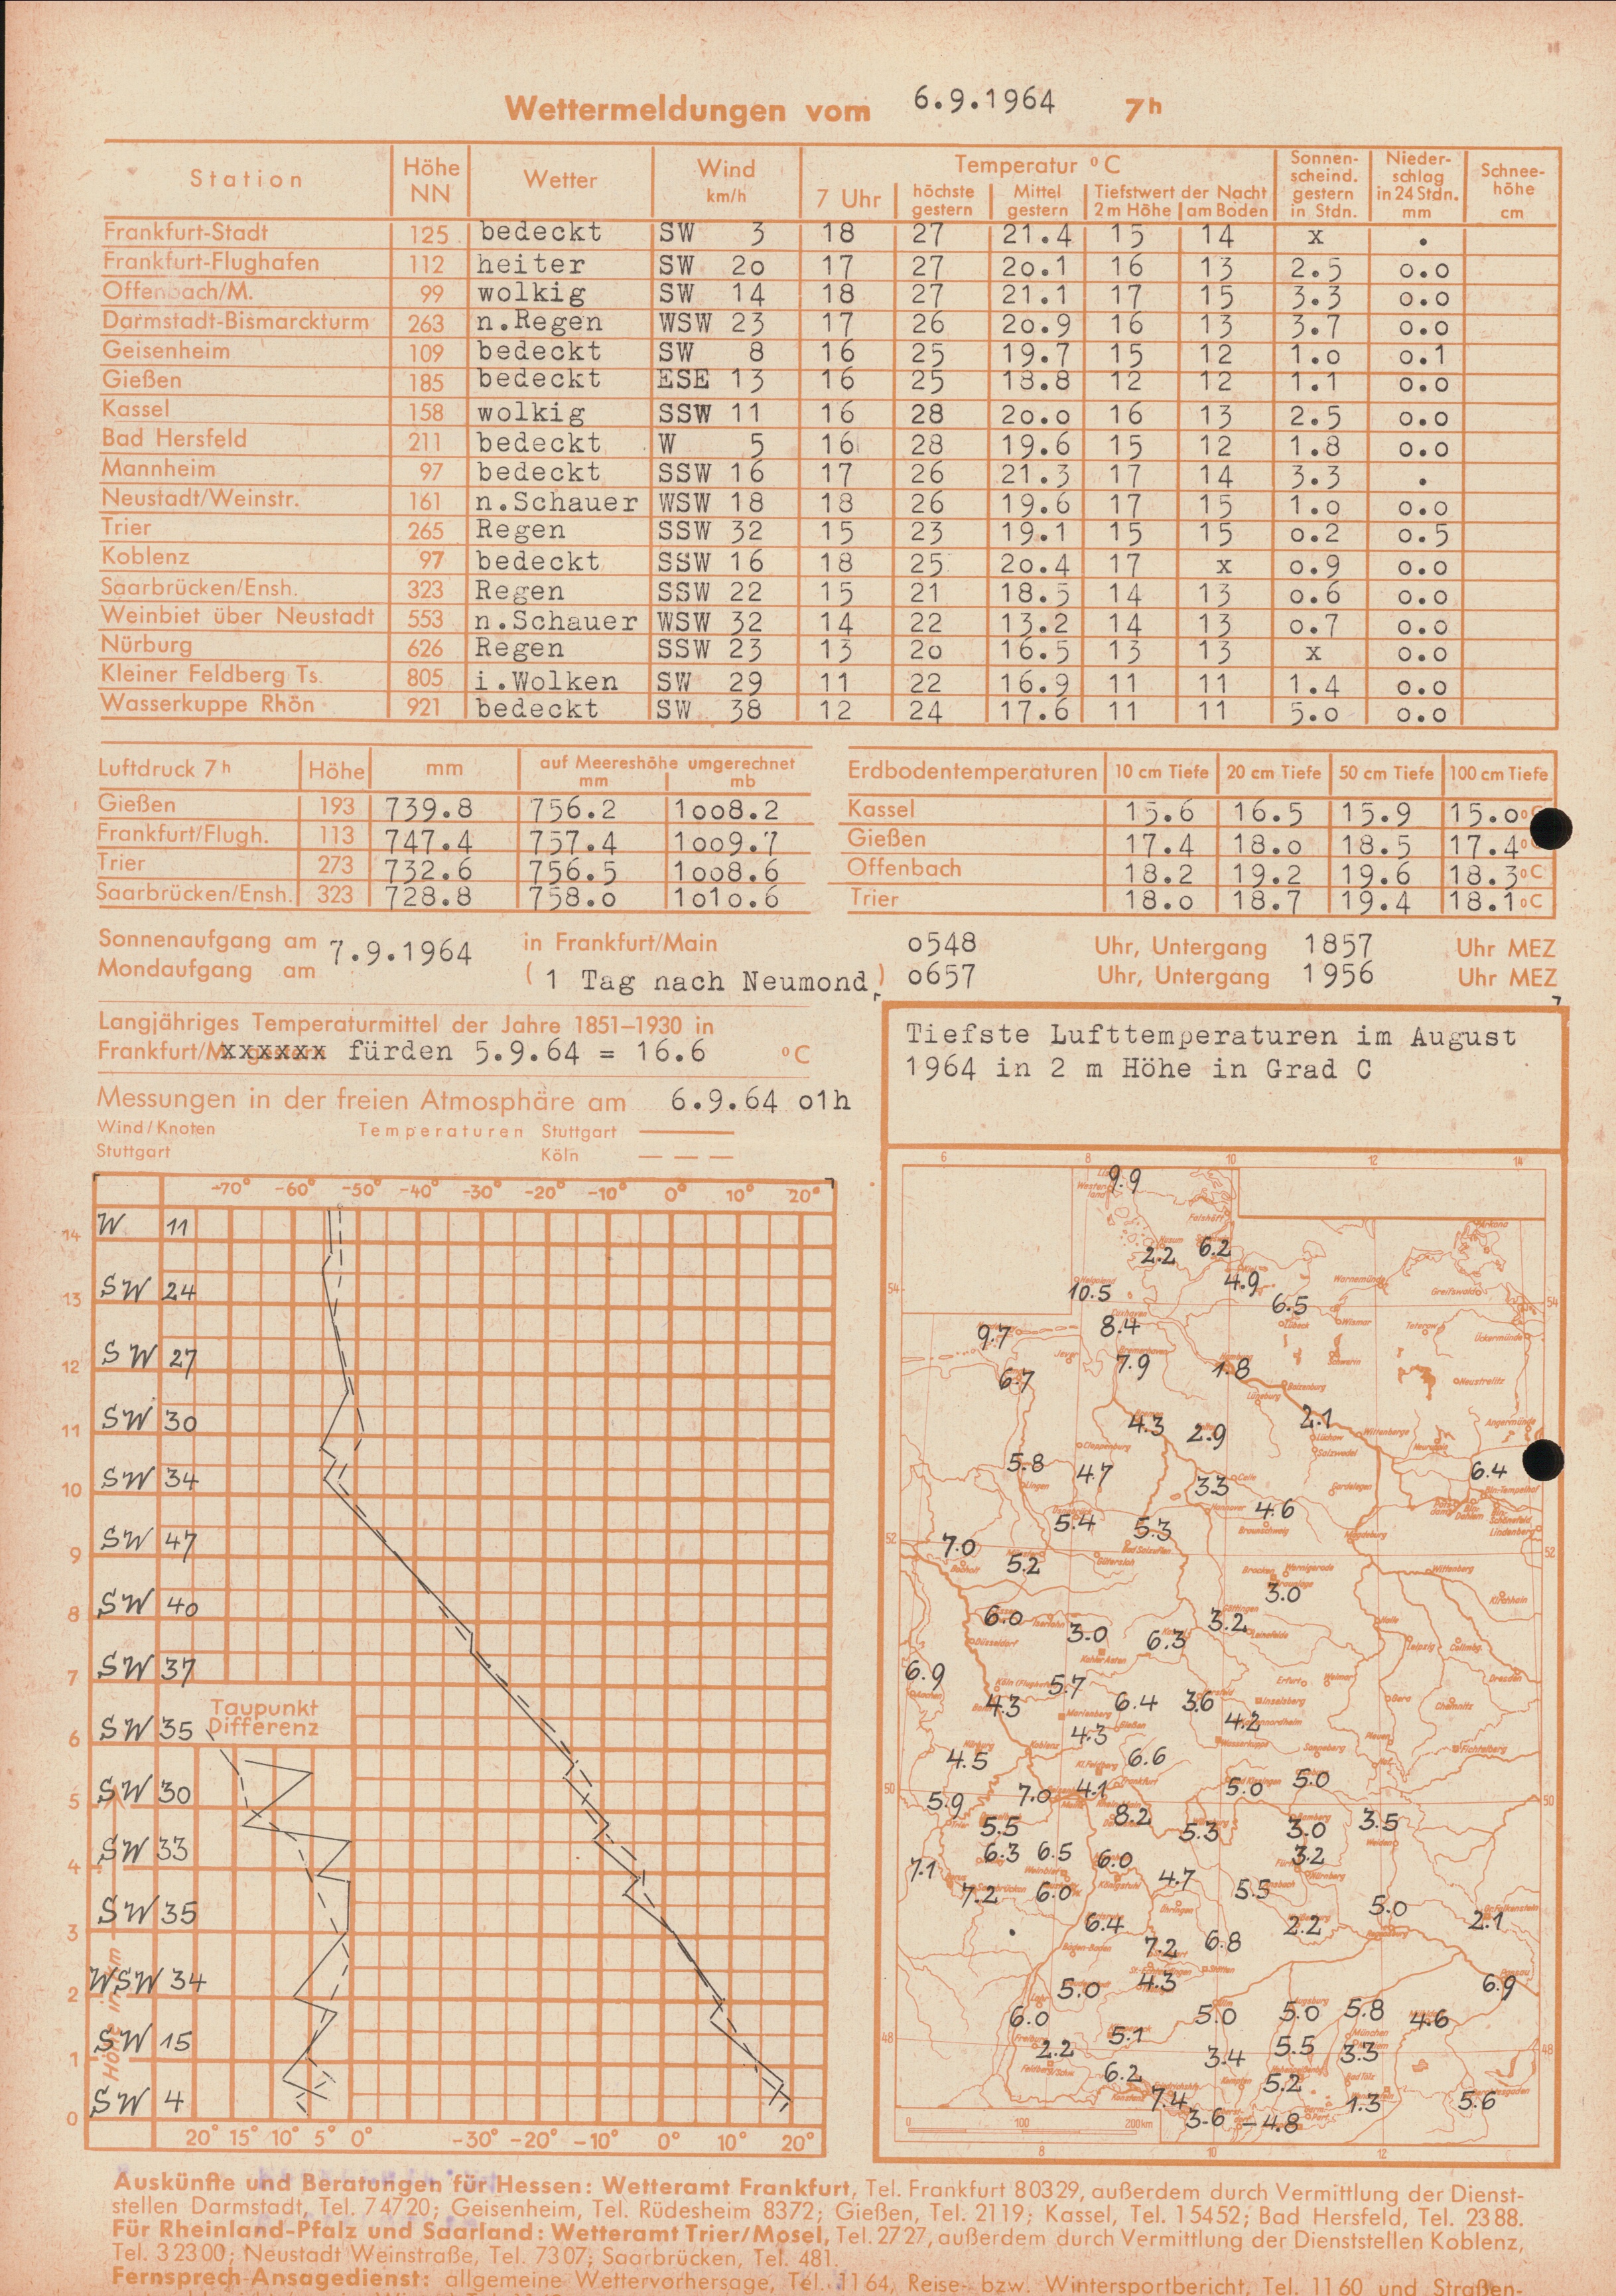 Wettermeldungen vom 6.9.1964 7h
Station Höhe NN Wetter Wind km/h Temperatur °C Sonnen-scheind. gestern in Stdn. Nieder-schlag in 24 Stdn. mm Schnee-höhe cm
7 Uhr höchste gestern Mittel gestern Tiefstwert der Nacht 2 m Höhe am Boden
Frankfurt-Stadt 125 bedeckt SW 3 18 27 21.4 15 14 x .
Frankfurt-Flughafen 112 heiter SW 2o 17 27 2o.1 16 13 2.5 o.o
Offenbach/M. 99 wolkig SW 14 18 27 21.1 17 15 3.3 o.o
Darmstadt-Bismarckturm 263 n.Regen WSW 23 17 26 2o.9 16 13 3.7 o.o
Geisenheim 109 bedeckt SW 8 16 25 19.7 15 12 1.o o.1
Gießen 185 bedeckt ESE 13 16 25 18.8 12 12 1.1 o.o
Kassel 158 wolkig SSW 11 16 28 2o.o 16 13 2.5 o.o
Bad Hersfeld 211 bedeckt W 5 16 28 19.6 15 12 1.8 o.o
Mannheim 97 bedeckt SSW 16 17 26 21.3 17 14 3.3 .
Neustadt/Weinstr. 161 n.Schauer WSW 18 18 26 19.6 17 15 1.o o.o
Trier 265 Regen SSW 32 15 23 19.1 15 15 o.2 o.5
Koblenz 97 bedeckt SSW 16 18 25 2o.4 17 x o.9 o.o
Saarbrücken/Ensh. 323 Regen SSW 22 15 21 18.5 14 13 o.6 o.o
Weinbiet über Neustadt 553 n.Schauer WSW 32 14 22 13.2 14 13 o.7 o.o
Nürburg 626 Regen SSW 23 13 2o 16.5 13 13 x o.o
Kleiner Feldberg Ts. 805 i.Wolken SW 29 11 22 16.9 11 11 1.4 o.o
Wasserkuppe Rhön 921 bedeckt SW 38 12 24 17.6 11 11 5.o o.o
Luftdruck 7h Höhe mm auf Meereshöhe umgerechnet mm mb
Gießen 193 739.8 756.2 1oo8.2
Frankfurt/Flugh. 113 747.4 757.4 1oo9.7
Trier 273 732.6 756.5 1oo8.6
Saarbrücken/Ensh. 323 728.8 758.o 1o1o.6
Erdbodentemperaturen 10 cm Tiefe 20 cm Tiefe 50 cm Tiefe 100 cm Tiefe
Kassel 15.6 16.5 15.9 15.o °C
Gießen 17.4 18.o 18.5 17.4 °C
Offenbach 18.2 19.2 19.6 18.3 °C
Trier 18.o 18.7 19.4 18.1 °C
Sonnenaufgang am 7.9.1964 in Frankfurt/Main o548 Uhr, Untergang 1857 Uhr MEZ
Mondaufgang am ( 1 Tag nach Neumond ) o657 Uhr, Untergang 1956 Uhr MEZ
Langjähriges Temperaturmittel der Jahre 1851–1930 in
Frankfurt/M xxxxxx fürden 5.9.64 = 16.6 °C
Messungen in der freien Atmosphäre am 6.9.64 o1h
Wind/Knoten Temperaturen Stuttgart
Stuttgart Köln
-70° -60° -50° -40° -30° -20° -10° 0° 10° 20°
14 W 11
13 SW 24
12 SW 27
11 SW 30
10 SW 34
9 SW 47
8 SW 40
7 SW 37
Taupunkt
Differenz
6 SW 35
5 SW 30
4 SW 33
3 SW 35
2 WSW 34
1 SW 15
0 SW 4
20° 15° 10° 5° 0° -30° -20° -10° 0° 10° 20°
Tiefste Lufttemperaturen im August
1964 in 2 m Höhe in Grad C
6 8 10 12 14
9.9
2.2 6.2
10.5 4.9
6.5
9.7 8.4
7.9 1.8
6.7
4.3 2.9 2.1
5.8 4.7 6.4
3.3 4.6
5.4 5.3
7.0 5.2
3.0
6.0 3.0 6.3 3.2
6.9 5.7
4.3 6.4 3.6 4.2
4.3
4.5 6.6
7.0 4.1 5.0 5.0
5.9 8.2
5.5 5.3 3.0 3.5
6.3 6.5 6.0 3.2
7.1 4.7
7.2 6.0 5.5
5.0
6.4 2.2 2.1
7.2 6.8
5.0 4.3 6.9
6.0 5.0 5.0 5.8 4.6
5.1
2.2 3.4 5.5 3.3
6.2 5.2
7.4 1.3 5.6
3.6 -4.8
0 100 200 km
8 10 12
Auskünfte und Beratungen für Hessen: Wetteramt Frankfurt, Tel. Frankfurt 80329, außerdem durch Vermittlung der Dienst-
stellen Darmstadt, Tel. 74720; Geisenheim, Tel. Rüdesheim 8372; Gießen, Tel. 2119; Kassel, Tel. 15452; Bad Hersfeld, Tel. 2388.
Für Rheinland-Pfalz und Saarland: Wetteramt Trier/Mosel, Tel. 2727, außerdem durch Vermittlung der Dienststellen Koblenz,
Tel. 32300; Neustadt Weinstraße, Tel. 7307; Saarbrücken, Tel. 481.
Fernsprech-Ansagedienst: allgemeine Wettervorhersage, Tel. 1164, Reise- bzw. Wintersportbericht, Tel. 1160 und Straßen-